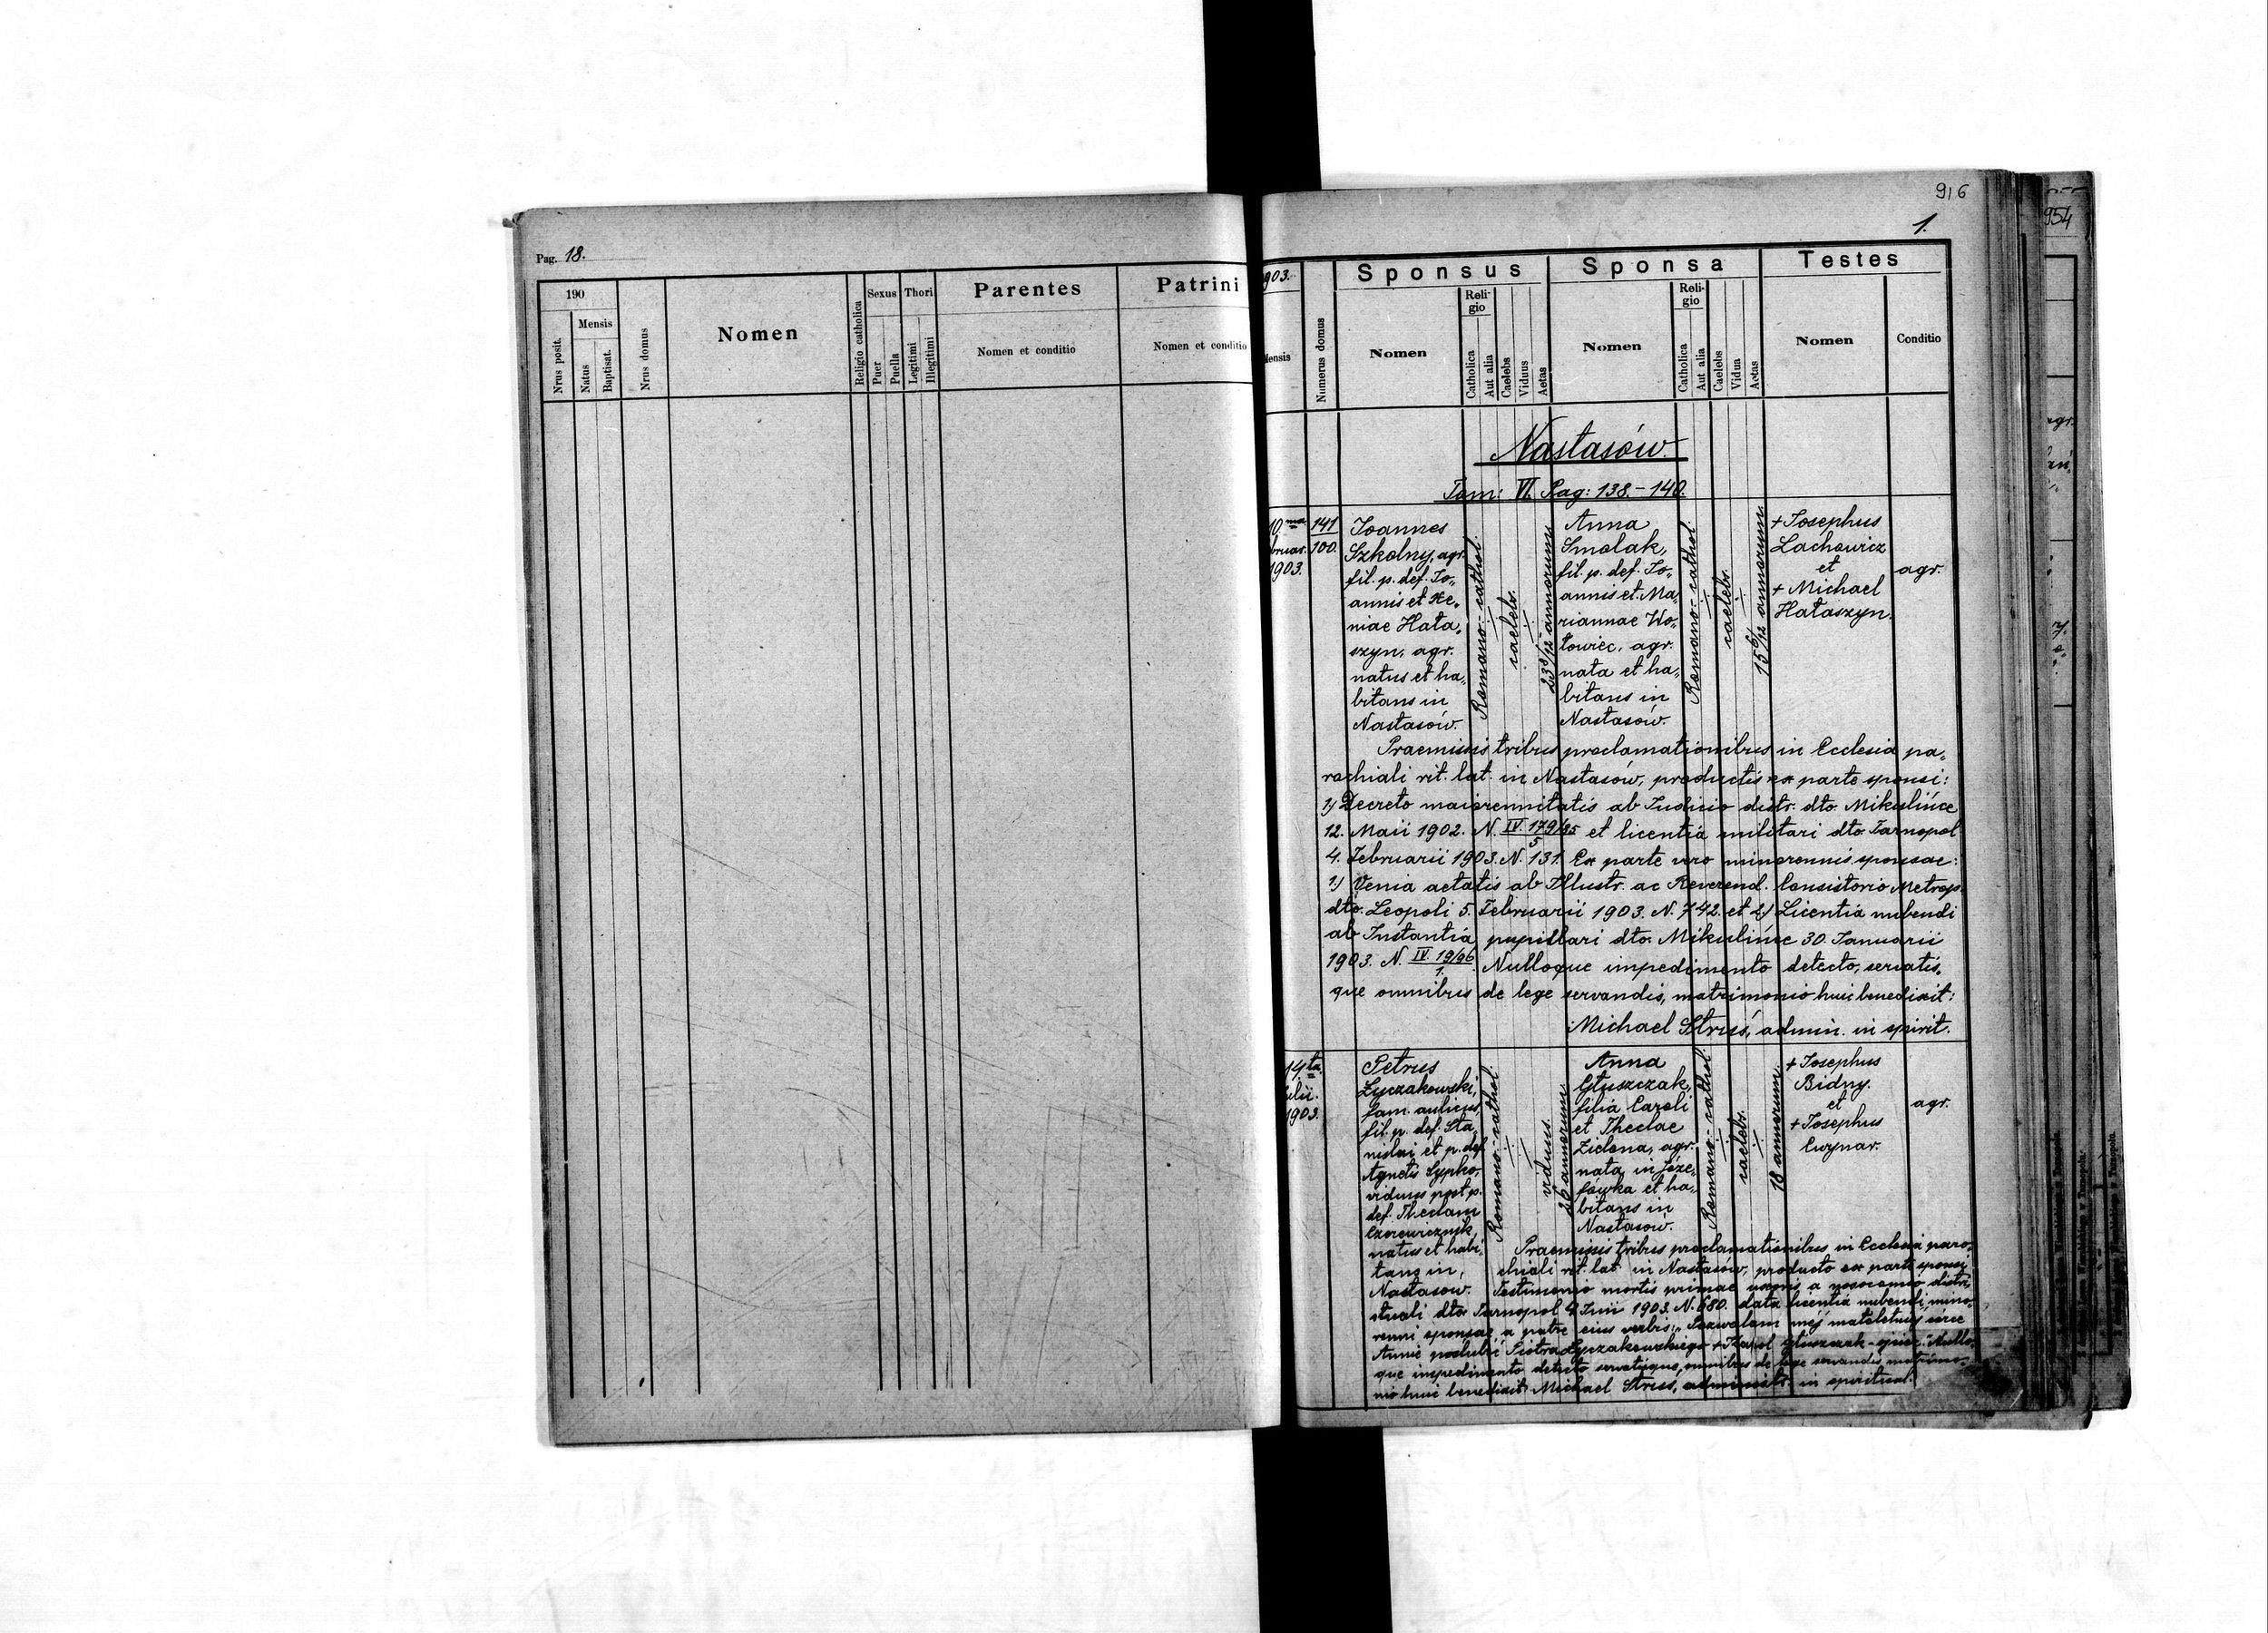 Pag. 18.
190
Nrus posit.
Mensis
Natus
Baptisat.
Nrus domus
Nomen
Religio catholica
Sexus
Puer
Puella
Thori
Legitimi
Illegitimi
Parentes
Nomen et conditio
Patrini
Nomen et conditio
916
1.
903.
ensis
Numerus domus
Sponsus
Nomen
Reli-
gio
Catholica
Aut alia
Caelebs
Viduus
Aetas
Sponsa
Nomen
Reli-
gio
Catholica
Aut alia
Caelebs
Vidua
Aetas
Testes
Nomen
Conditio
Nastasów.
Tom: VI. Pag: 138.-140.
10.ma
bruar.
1903.
141
100.
Joannes
Szkolny, agr.
fil. p. def. Jo„
annis et Xe„
niae Hała„
szyn, agr.
natus et ha„
bitans in
Nastasów.
Romano-cathol.
caelebs.
23 8/12 annorum
Anna
Smolak,
fil. p. def. Jo„
annis et Ma„
riannae Wo„
towiec, agr.
nata et ha„
bitans in
Nastasów.
Romano-cathol.
caelebs.
15 6/12 annorum.
+ Josephus
Lachowicz
et
+ Michael
Hałaszyn.
agr.
Praemissis tribus proclamationibus in Ecclesia pa„
rochiali rit. lat. in Nastasów, productis ex parte sponsi:
1) Decreto maiorennitatis ab Iudicio distr. dto. Mikulińce
12. Maii 1902. N. IV. 179/95/5 et licentia militari dto Tarnopol
4. Februarii 1903. N. 131. Ex parte vero minorennis sponsae:
1) Venia aetatis ab Illustr. ac Reverend. Consistorio Metrop.
dto. Leopoli 5. Februarii 1903. N. 742. et 2) Licentia nubendi
ab Instantia pupillari dto. Mikulińce 30. Januarii
1903. N. IV. 19/96/1. Nulloque impedimento detecto, servatis„
que omnibus de lege servandis, matrimonio huic benedixit:
Michael Struś, admin. in spirit.
14.ta
ulii.
1903.
Petrus
Łyczakowski,
fam. aulicus,
fil. p. def. Sta„
nislai et p. def.
Agnetis Sypko,
viduus post p.
def. Theclam
natus et habi„
tans in
Nastasow.
Romano-cathol.
viduus.
26 annorum
Anna
Głuszczak,
filia Caroli
et Theclae
Zielona, agr.
nata in Józe„
fówka et ha„
bitans in
Nastasow.
Romano-cathol.
caelebs.
18 annorum.
+ Josephus
Bidny.
et
+ Josephus
Cuznar.
agr.
Praemissis tribus proclamationibus in Ecclesia paro„
chiali rit. lat. in Nastasów, producto ex parte sponsi
Testimonio mortis primae uxoris a nosocomio distri„
ctuali dto Tarnopol 4 Junii 1903. N. 680. data licentia nubendi mino„
renni sponsae a patre eius verbis: „Pozwalam mej małoletniej córce
Annie poślubić Piotra Łyczakowskiego + Karol Głuszczak-ojciec." Nullo„
que impedimento detecto servatisque, omnibus de lege servandis, matrimo„
nio huic benedixit: Michael Struś, administr. in spiritual.
954
agr.